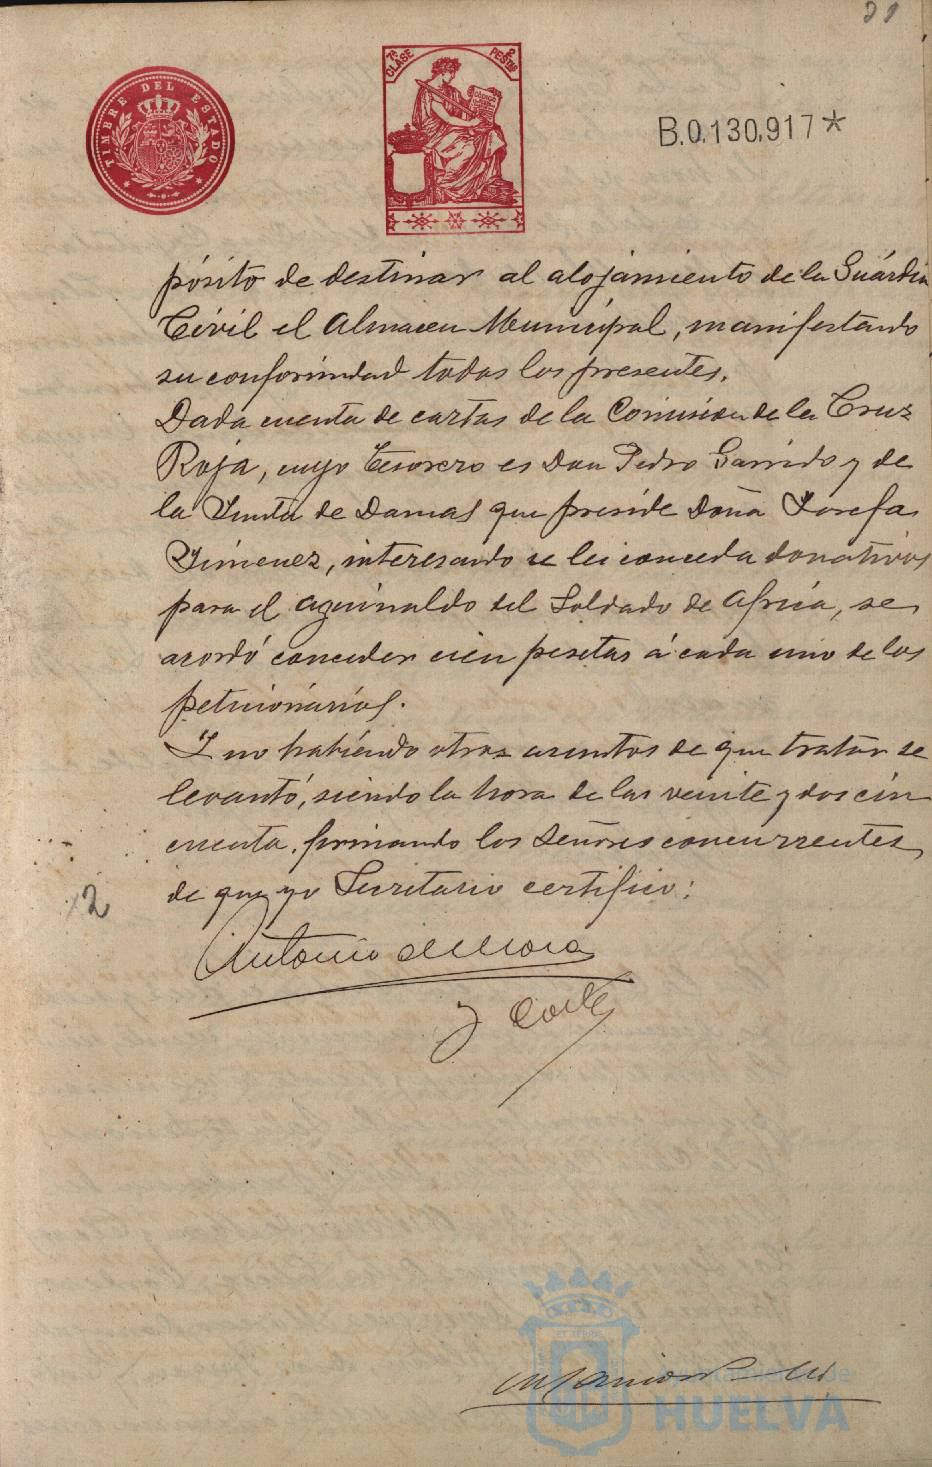 21
TIMBRE DEL ESTADO
7ª CLASE
2 PESTAS
B.0.130.917*
pósito de destinar al alojamiento de la Guárdia
Civil el Almacen Municipal, manifestando
su conformidad todos los presentes.
Dada cuenta de cartas de la Comision de la Cruz
Roja, cuyo Tesorero es Don Pedro Garrido y de
la Junta de Damas que preside Doña Josefa
Jiménez, interesando se les conceda donativos
para el aguinaldo del Soldado de Africa, se
acordó conceder cien pesetas á cada uno de los
peticionários.
Y no habiendo otros asuntos de que tratar se
levantó, siendo la hora de las veinte y dos cin
cuenta, firmando los Señores concurrentes,
de que yo Secretario certifico:
2
Antonio de Mora
y
Ayuntamiento de
HUELVA